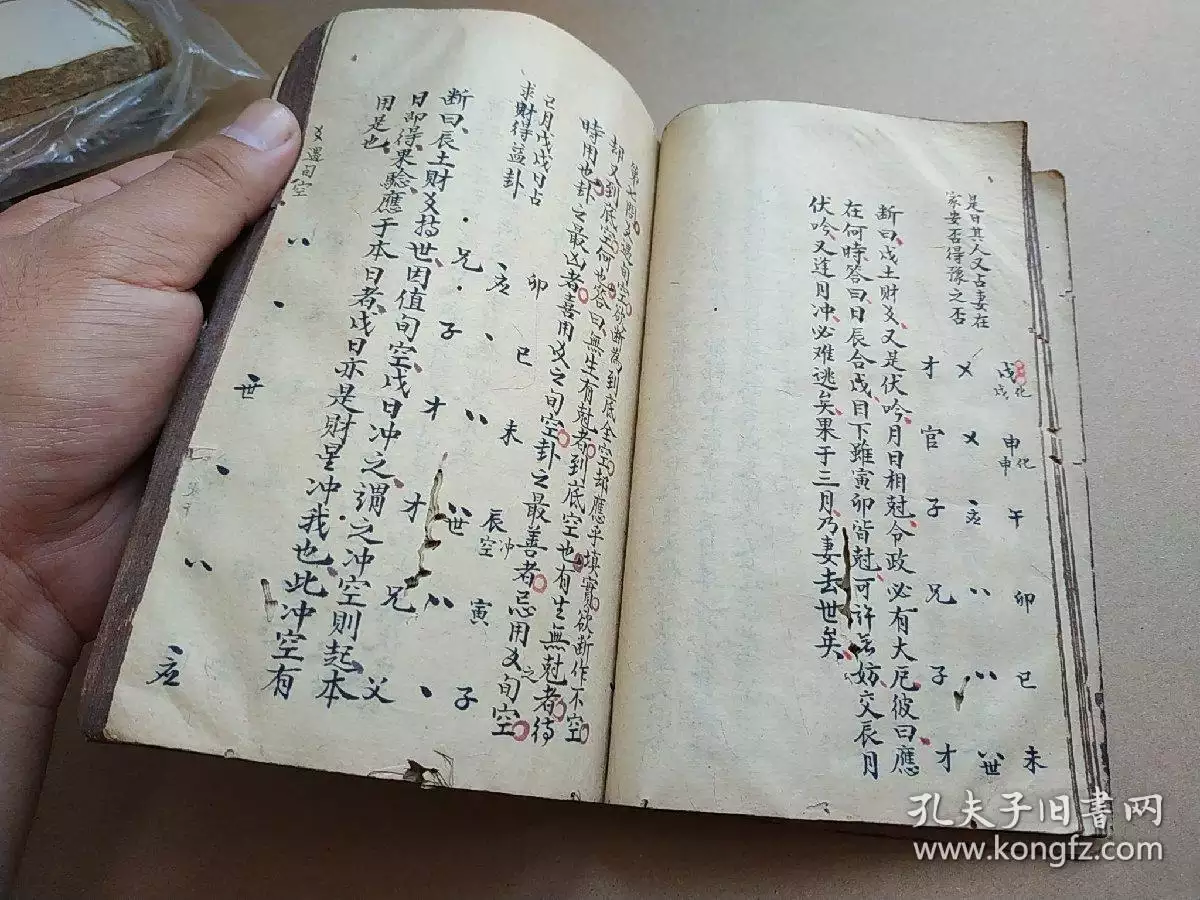 是日其人又占妻在
家安否得豫之否
才乂戌化戌
官乂申化申
子、应午
兄八卯
子八巳
才八世未
断曰戌土財爻又是伏吟月日相尅令政必有大厄彼曰應
在何時答曰日辰合戌目下雖寅卯皆尅可許無妨交辰月
伏吟又逢月冲必难逃矣果于三月乃妻去世矣
第十問爻遇旬空所断為到底全空却應乎填實欲断作不空
却又到底空何也答曰無生有尅者到底空也有生無尅者待
時用也卦之最凶者喜用爻之旬空卦之最善者忌用爻之旬空
己月戊戌日占
求財得益卦
兄、应卯
子、巳
才八未
才八世辰空冲
兄八寅
父、子
断曰辰土財爻持世因值旬空戌日冲之謂之冲空則起本
日即得果驗應于本日者戌日亦是財星冲我也此冲空有
用是也
爻遇旬空
八
、
、世
、
八
、应
孔夫子旧書网
www.kongfz.com